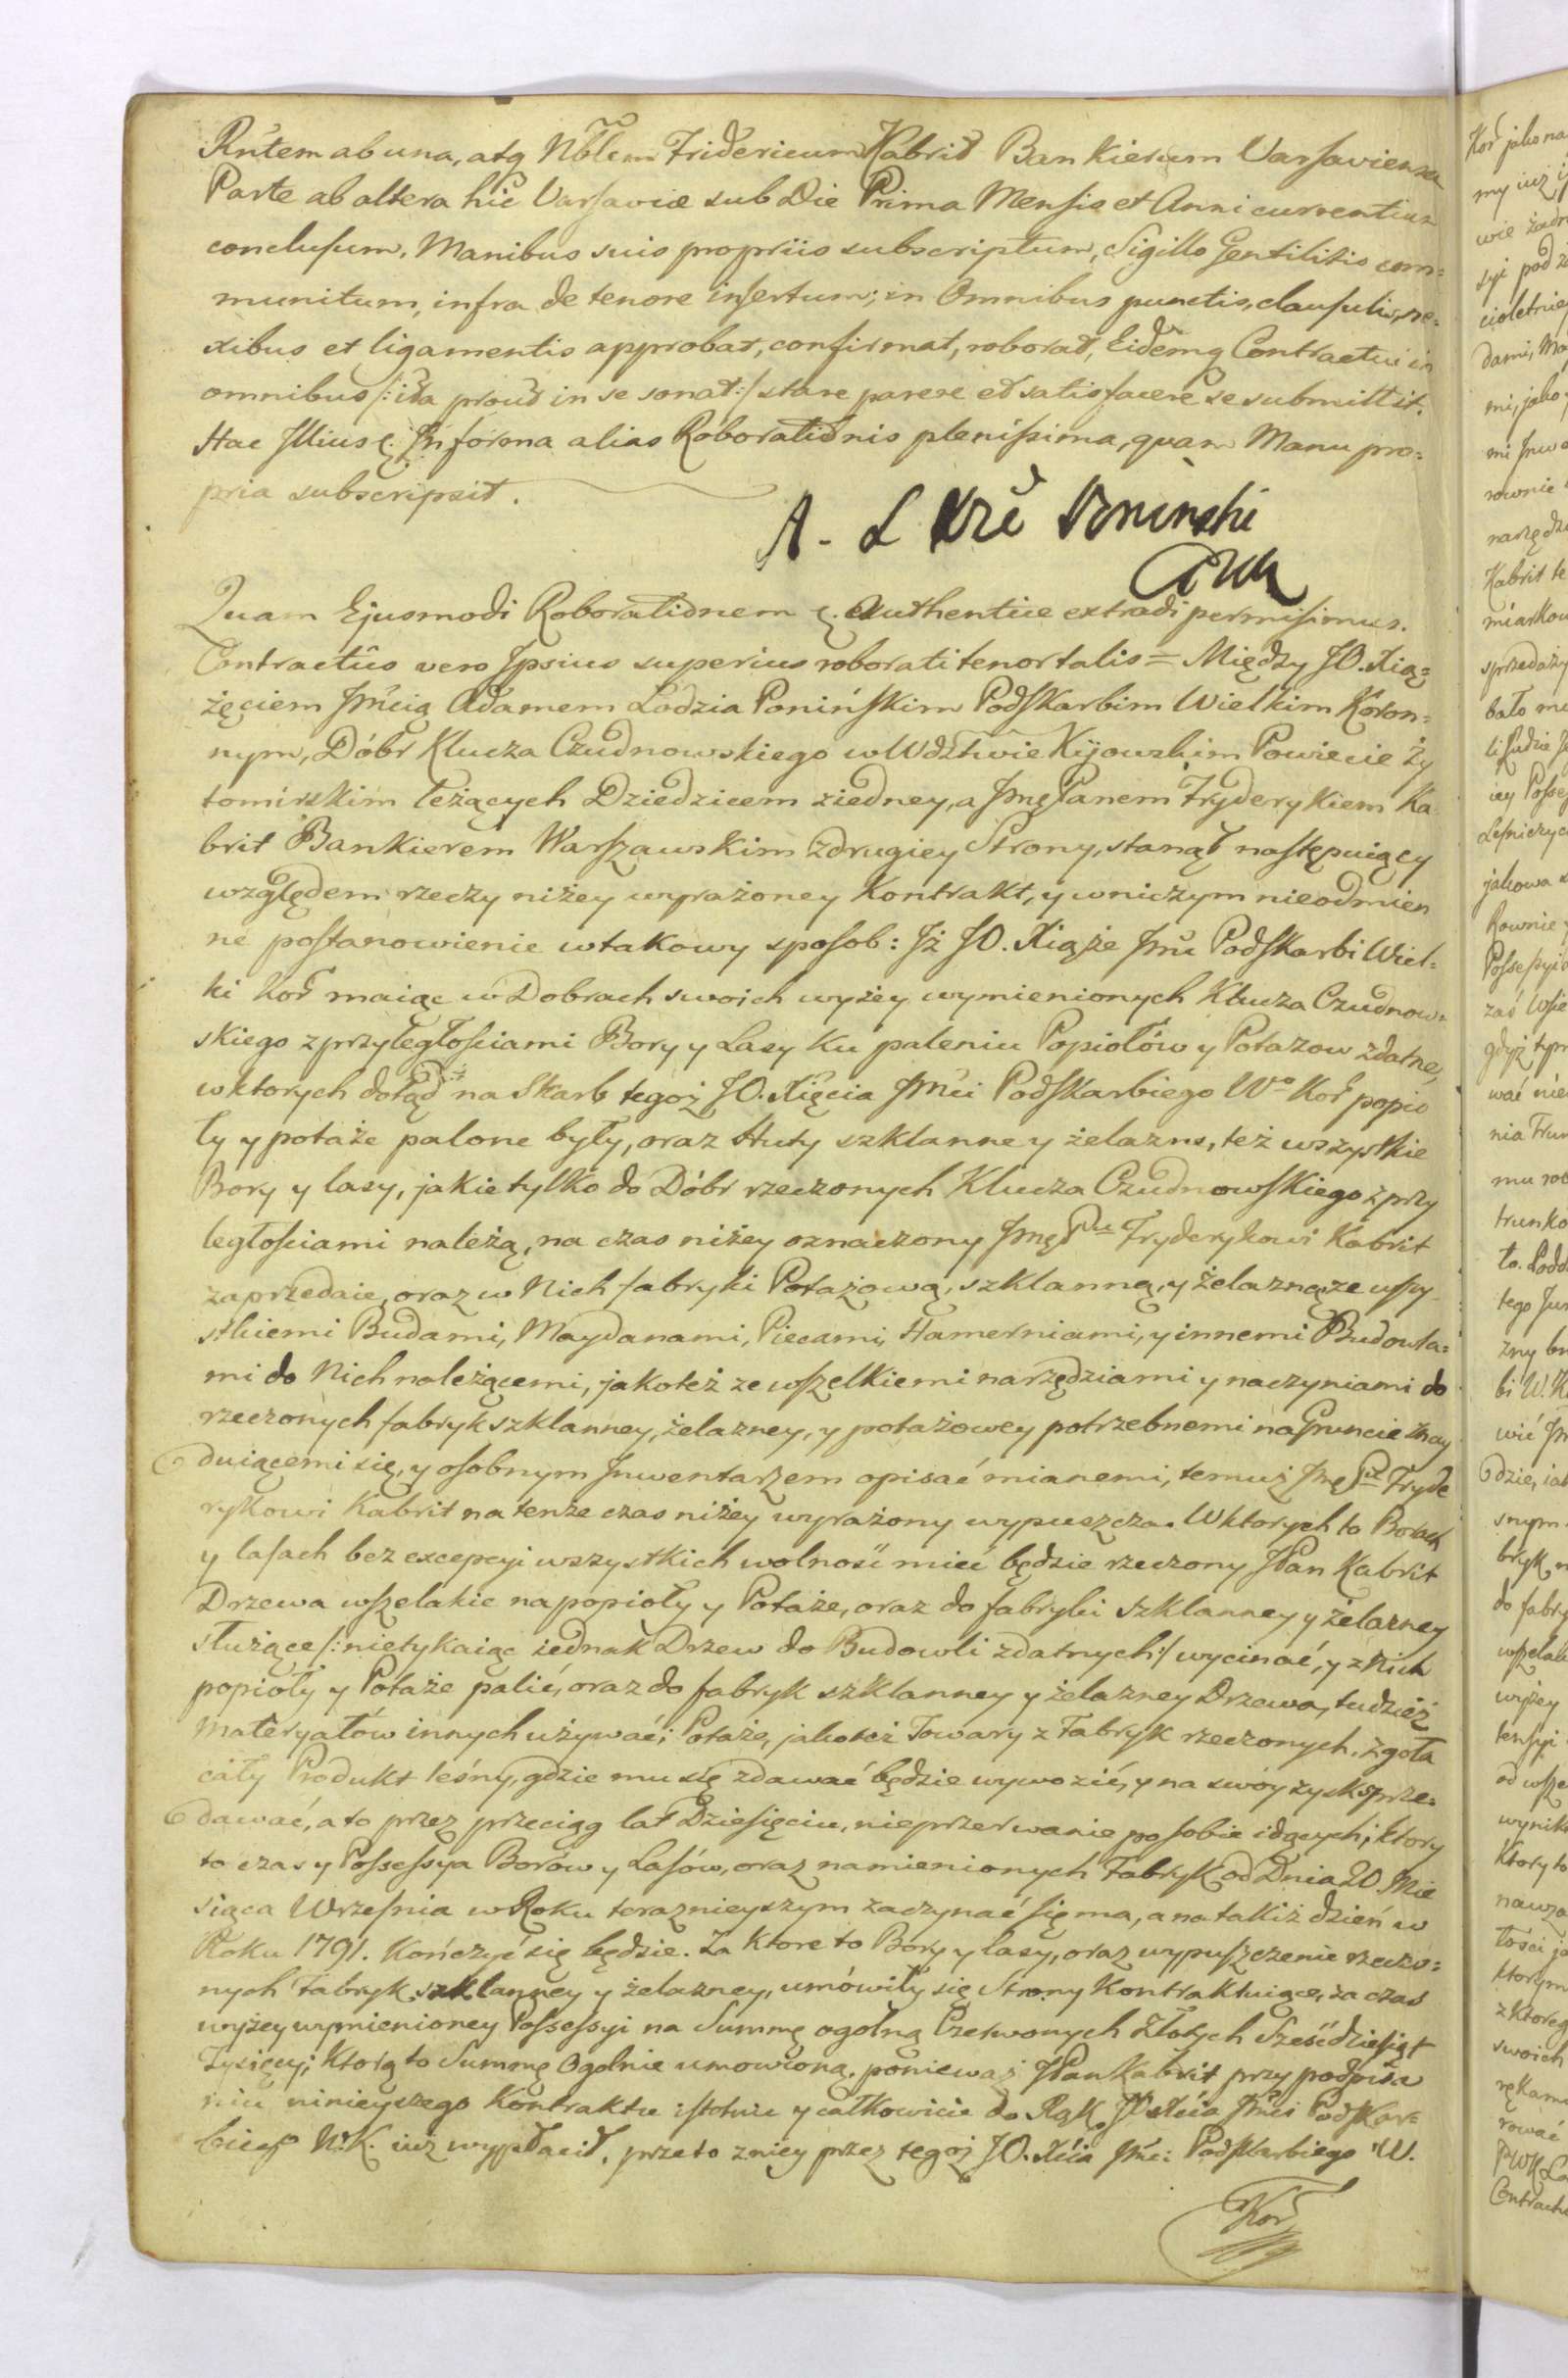 Rntem ab una, atq Nbłem Fridericum Kabrit Bankierum Varsaviensem
Parte ab altera hic Varsaviæ sub Die Prima Mensis et Anni currentium
conclusum, Manibus suis propriis subscriptum, Sigillo Gentilitio com=
munitum, infra de tenore insertum; in Omnibus punctis, clausulis, ne=
xibus et ligamentis approbat, confirmat, roborat, Eidemq Contractui in
omnibus /:ita prout in se sonat:/ stare parere et satisfacere se submittit.
Hac Illius Informa alias Roborationis plenissima, quam Manu pro=
pria subscripsit.
A. L Poninski
Quam Ejusmodi Roborationem Authentice extradi permisimus.
Contractus vero Ipsius superius roborati tenor talis = Między JO. Xią=
żęciem Jmcią Adamem Łodzia Ponińskim Podskarbim Wielkim Koron=
nym, Dóbr Klucza Czudnowskiego w Wdztwie Kijowskim Powiecie Ży
tomirskim leżących Dziedzicem z iedney, a Jmę Panem Fryderykiem Ka
brit Bankierem Warszawskim z drugiey Strony, stanął następuiący
względem rzeczy niżey wyrażoney Kontrakt, y wniczym nieodmien
ne postanowienie w takowy sposob: Iż JO. Xiąże Jmć Podskarbi Wiel=
ki Koř maiąc w Dobrach swoich wyżey wymienionych Klucza Czudnow=
skiego z przyległościami Bory y Lasy ku paleniu Popiołów y Potazow zdatne,
w ktorych dotąd na Skarb tegoż JO. Xięcia Jmći Podskarbiego Wo Koř popio
ły y potaże palone były, oraz Huty szklanne y żelazne, też wszystkie
Bory y lasy, jakie tylko do Dóbr rzeczonych Klucza Czudnowskiego z przy
ległościami należą, na czas niżey oznaczony Jmę Pu Fryderykowi Kabrit
zaprzedaie, oraz w Nich fabryki Potażową, szklanną, y żelazną, ze wszy
stkiemi Budami, Maydanami, Piecami, Hamerniami, y innemi Budowla=
mi do Nich należącemi, jakoteż ze wszelkiemi narzędziami y naczyniami do
rzeczonych fabryk szklanney, żelazney, y potażowey potrzebnemi na Gruncie znay
duiącemi się, y osobnym Inwentarzem opisać mianemi, temuż Jmę Pu Fryde
rykowi Kabrit na tenże czas niżey wyrażony wypuszcza. W ktorych to Borach
y lasach bez excepcyi wszystkich wolność mieć będzie rzeczony JPan Kabrit
Drzewa wszelakie na popioły y Potaże, oraz do fabryki szklanney y żelazney
służące /:nietykaiąc iednak Drzew do Budowli zdatnych:/ wycinać, y z Nich
popioły y Potaże palić, oraz do fabryk szklanney y żelazney Drzewa, tudzież
Materyałów innych używać; Potaże, jakoteż Towary z Fabryk rzeczonych, zgoła
cały Produkt leśny, gdzie mu się zdawać będzie wywozić, y na swóy zysk sprze=
dawać, a to przez przeciąg lat Dziesięciu, nieprzerwanie po sobie idących; ktory
to czas y Possessya Borów y Lasów, oraz namienionych Fabryk od Dnia 20. Mie
siąca Września w Roku teraznieyszym zaczynać się ma, a na takiż dzień w
Roku 1791. kończyć się będzie. Za ktore to Bory y lasy, oraz wypuszczenie rzeczo=
nych Fabryk szklanney y żelazney, umówiły się Strony Kontraktuiące, za czas
wyżey wymienioney Possessyi na Summę ogolną Czerwonych Złotych Sześćdziesiąt
Tysięcy; ktorą to Summę Ogolnie umowioną, ponieważ JPan Kabrit przy podpisa
niu ninieyszego Kontraktu istotnie y całkowicie do Rąk JO Xcia Jmći Podskar=
biego W.K. iuż wypłacił, przeto z niey przez tegoż JO. Xcia Jmći Podskarbiego W.
Kor